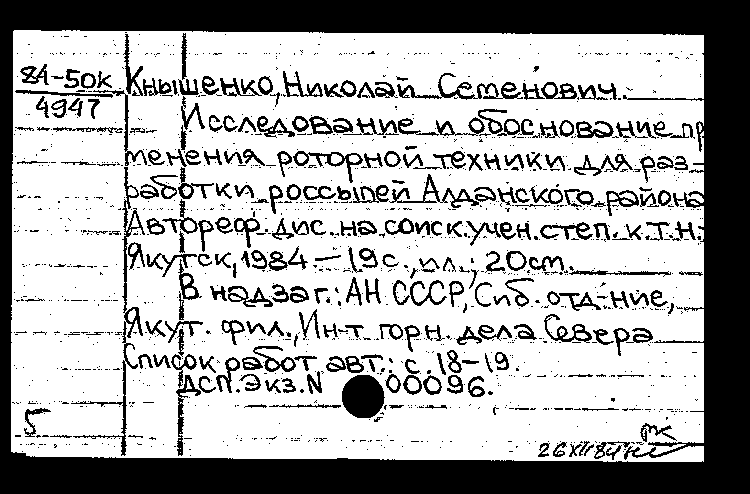 84-50к
4947
Кнышенко, Николай Семенович.
Исследование и обоснование пр
менения роторной техники для раз-
работки россыпей Алданского района
Автореф. дис. на соиск. учен. степ. к.т.н.:
Якутск, 1984 — 19 с., ил.; 20 см.
В надзаг.: АН СССР, Сиб. отд-ние,
Якут. фил., Ин-т горн. дела Севера
Список работ авт.: с. 18-19.
ДСП. Экз. N 00096.
5
рк
26 XII 84